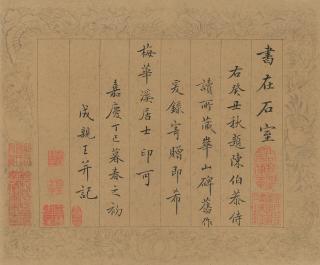 書在石室
右癸丑秋題陳伯恭侍
讀所藏華山碑舊作
爰錄寄贈即希
梅華溪居士印可
嘉慶丁巳暮春之初
成親王并記